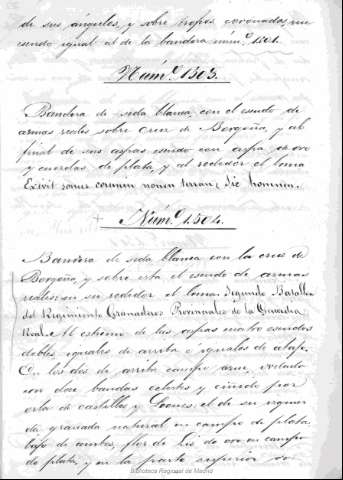 de sus ángulos, y sobre trofeos coronados,
siendo igual al de la bandera núm.º 1501.
Núm.º 1503.
Bandera de seda blanca, con el escudo de
armas reales sobre cruz de Borgoña, y al
final de sus aspas escudo con arpa de oro
y cuerdas de plata, y al rededor el lema
Exivit sonus eorum
Núm.º 1.504.
Bandera de seda blanca con la cruz de
Borgoña, y sobre esta el escudo de armas
reales: en su rededor el lema. Segundo Batallon
del Regimiento Granaderos Provinciales de la Guardia
Real. Al estremo de las aspas cuatro escudos
dobles, iguales de arriba é iguales de abajo.
Con los dos de arriba campo azul, cortado
con dos bandas celestes y ceñido por
orla de castillos y Leones, el de su
de granada natural en campo de plata
bajo de ambos, flor de lis de oro en campo
de plata, y en la parte superior
Biblioteca Regional de Madrid